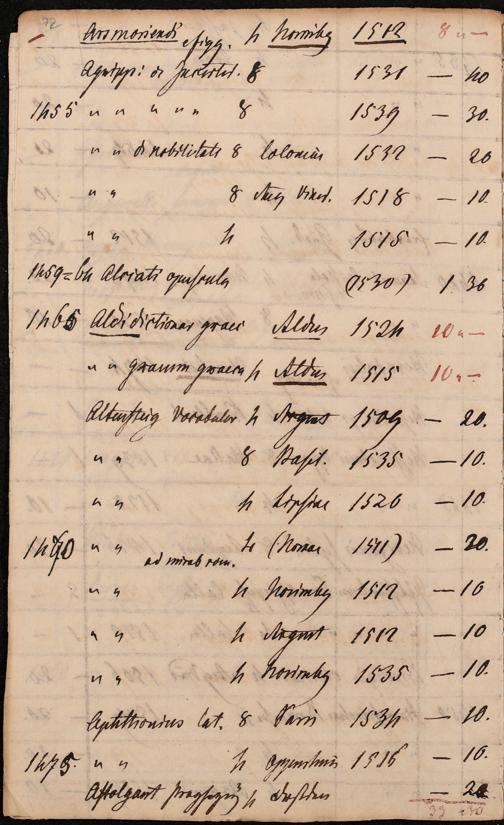 72
Ars moriendi efigg. h Norimbg 1512 8 „ —
Agrippi: di Incertitd. 8 1531 — 40
1455 „ „ „ „ „ 8 1539 — 30.
„ „ di nobilitate 8 Coloniae 1532 — 20
„ „ 8 Aug Vind. 1518 — 10.
„ „ h 1515 — 10.
1459=64 Alciati opuscula (1530) 1. 36
1465 Aldi dictionar graec Aldus 1524 10 „ —
„ „ gramm graeca h Aldus 1515 10 „ —
Altensteig Vocabular h Argent 1509 — 20.
„ „ 8 Basil. 1535 — 10.
„ „ h Lipsiae 1520 — 10.
1470 „ „ ad mirab rom. (Romae 1511) — 20.
„ „ h Norimbg 1512 — 10
„ „ h Argent 1512 — 10
„ „ h Norimbg 1535 — 10.
Aphthonius lat. 8 Paris 1534 — 10.
1475. „ „ h Oppenheim 1516 — 10.
h — 24
33 30